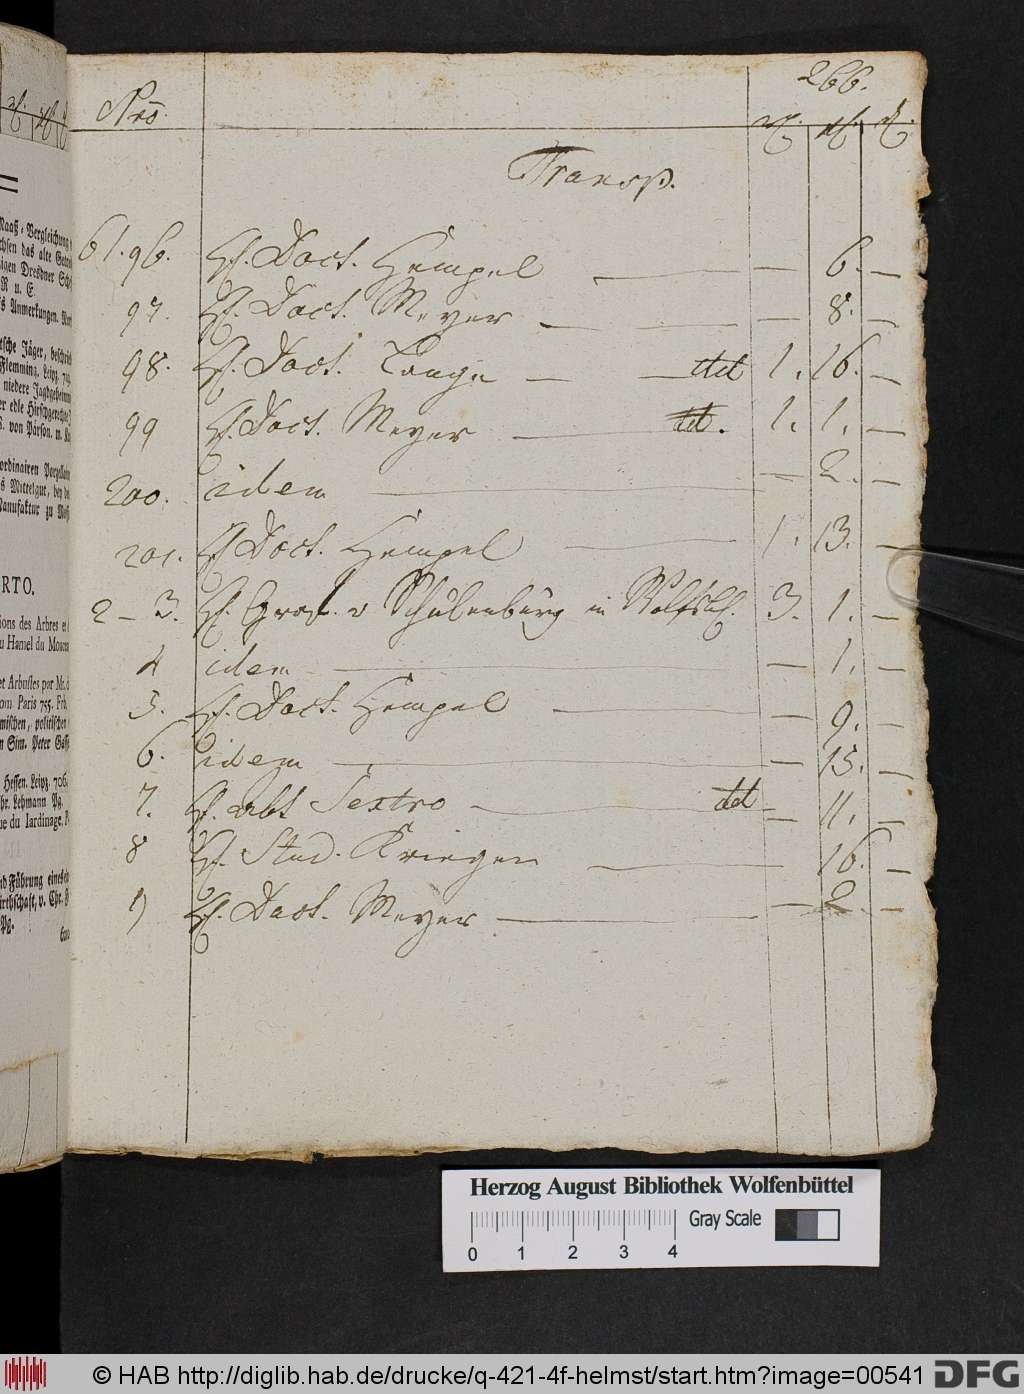 266.
Nrō.
Transp.
6196. H. Doct. Hempel — — 6. —
97. H. Doct. Meyer — — — 8. —
98. H. Doct. Lange — — ddt 1. 16. —
99 H. Doct. Meyer — dt. 1. 1. —
200. idem — — 2. —
201. H. Doct. Hempel — 1. 13. —
2 – 3. H. Graf. v Schulenburg in Wolfsb. 3. 1. —
4 idem — — 1. —
5. H. Doct. Hempel — — 9. —
6. idem — — 15. —
7. H. Abt Sextro — ddt — 11. —
8 H. Stud. Kriegen — 16. —
9 H. Doct. Meyer — — 2 —
Maaß-Vergleichung
chsen das alte Getre
igen Dresdner Sch
R u. E.
s Anmerkungen.
tsche Jäger, beschrie
Flemming. Leipz.
niedere Jagdgeheimn
er edle Hirschgerechte
. von Pärson.
ordinairen Porzellan
s Mittelgut, bey de
Manufaktur zu
RTO.
ions des Arbres et
u Hamel du Moncea
et Arbustes par Mr.
om Paris 755.
mischen, politischen
n Sim. Peter Gasse
Hessen. Leipz. 706.
hr. Lehmann Pg.
ue du Iardinage.
nd Führung eines
irthschaft, v. Chr.
Pg.
Herzog August Bibliothek Wolfenbüttel
Gray Scale
0 1 2 3 4
© HAB http://diglib.hab.de/drucke/q-421-4f-helmst/start.htm?image=00541
DFG